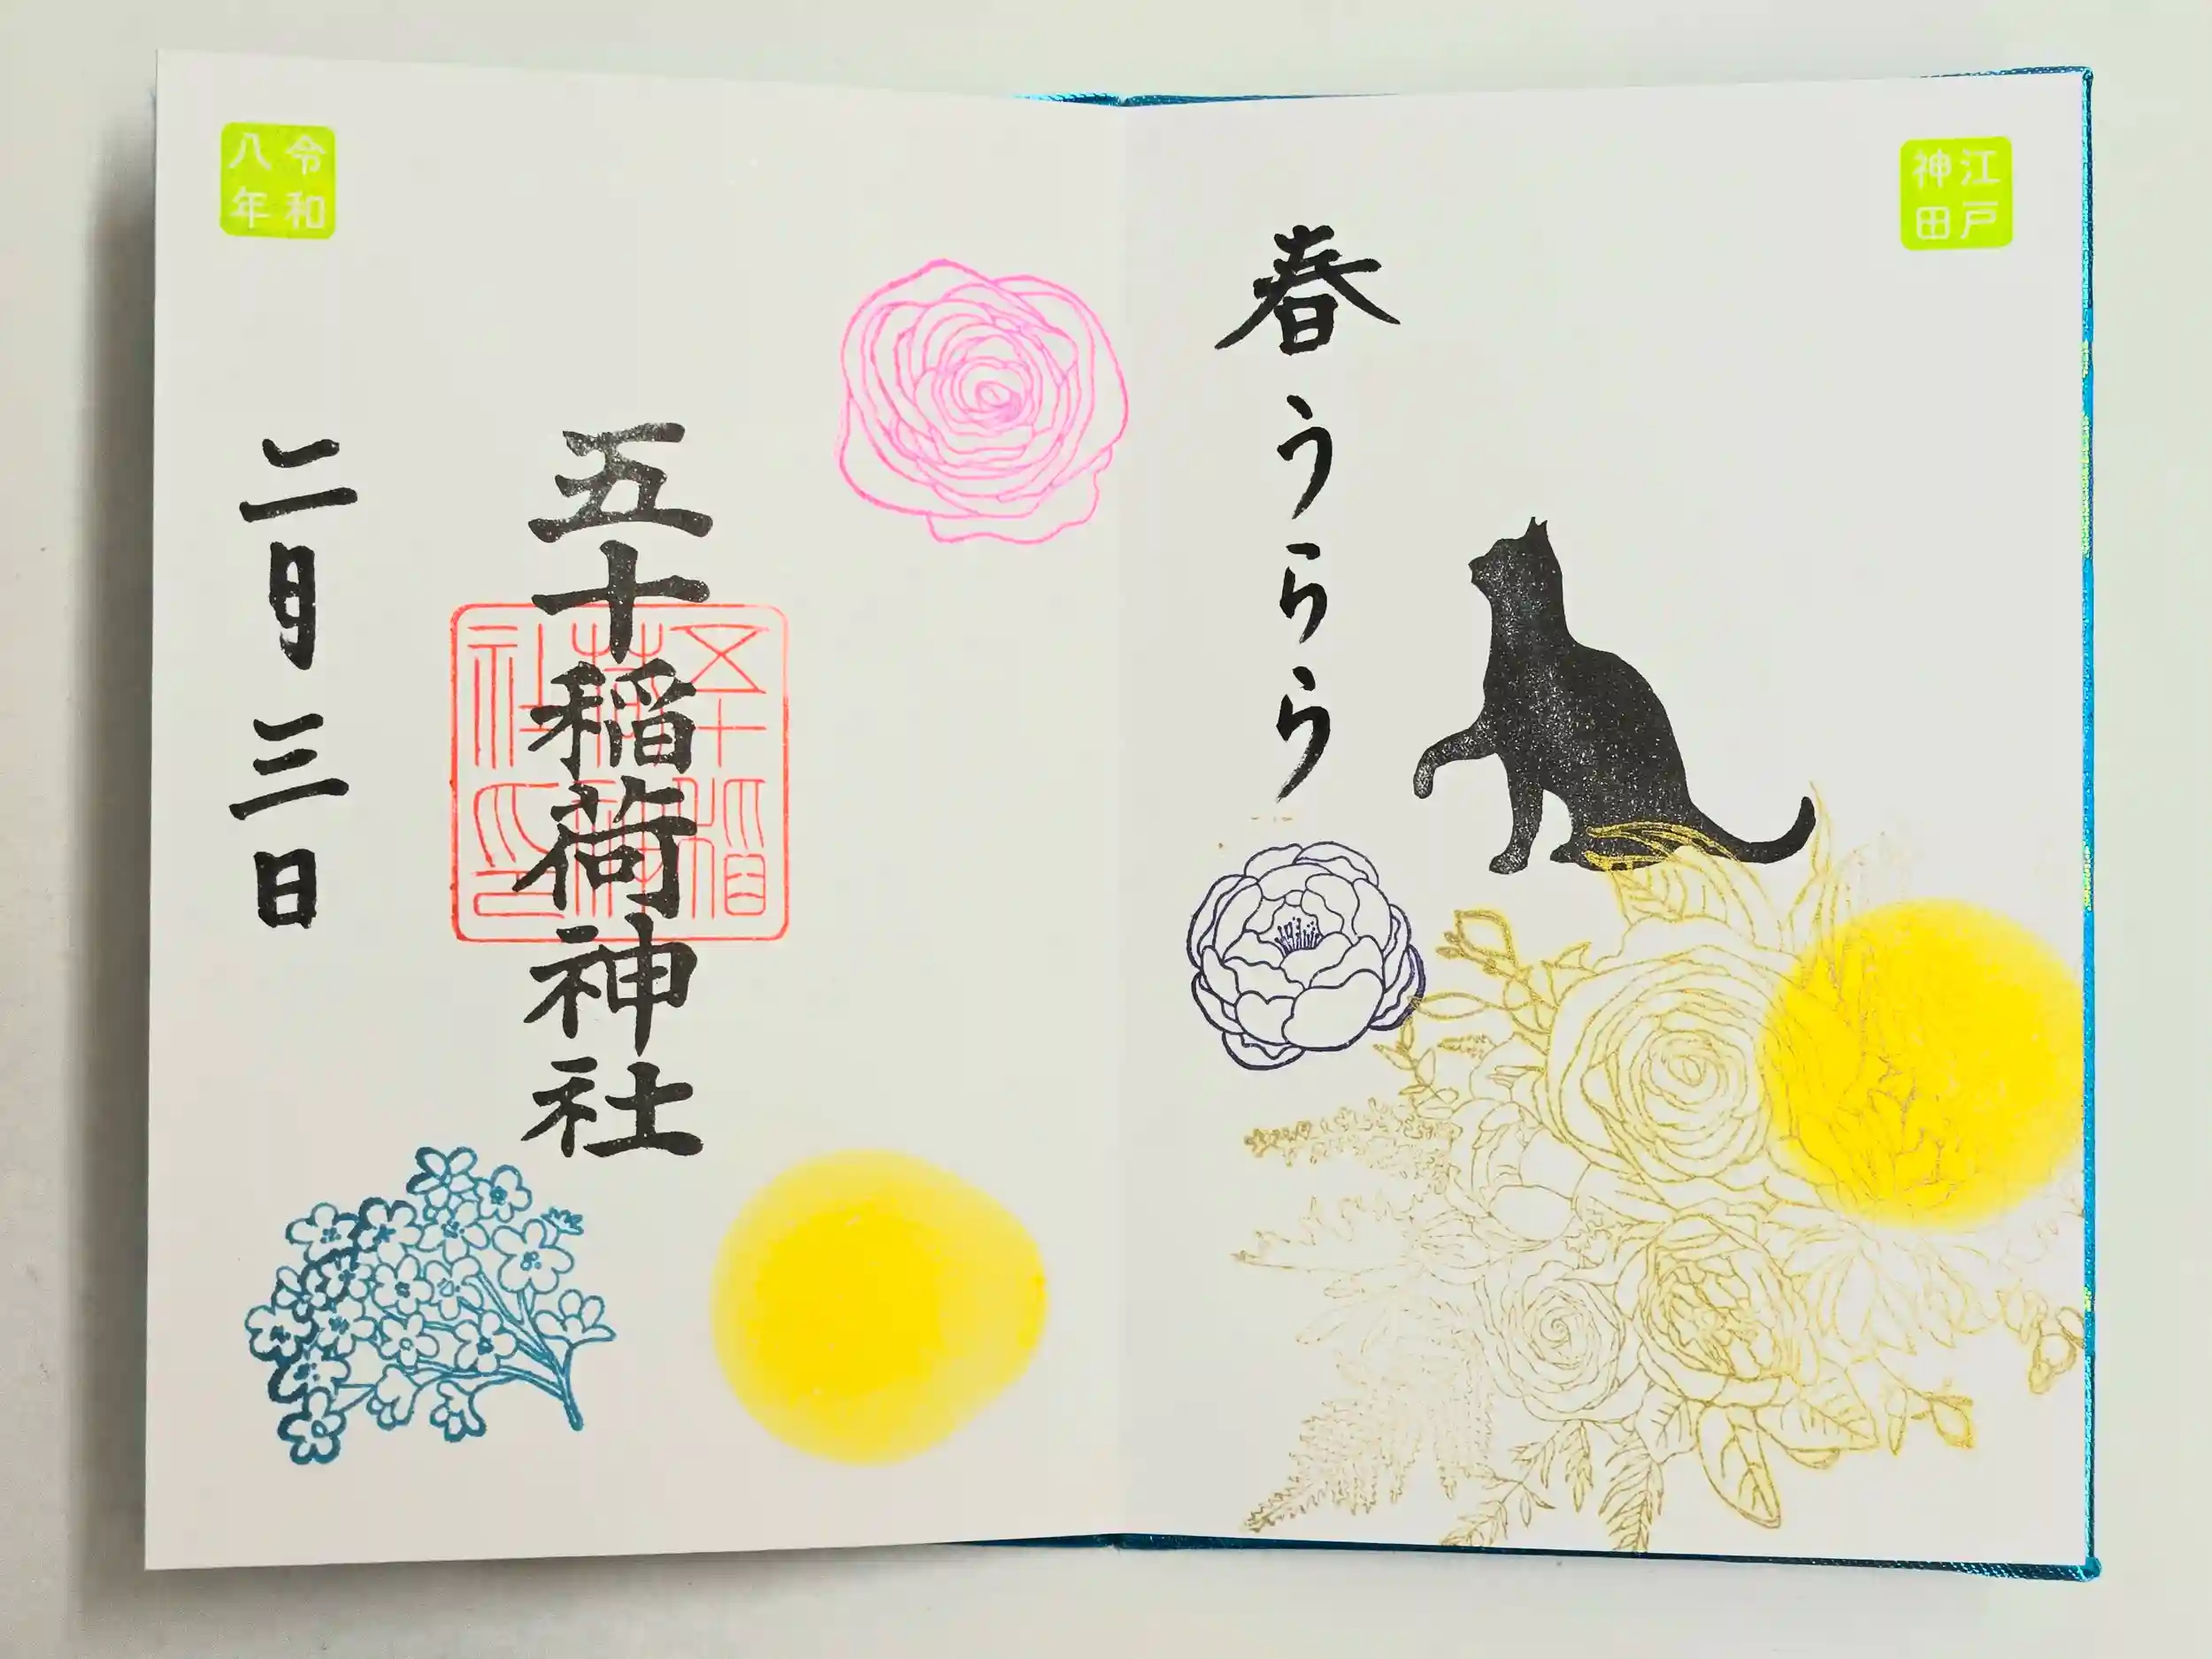 江戸
神田
春うらら
五十稲荷神社
五十稲
荷神
社印
令和
八年
二月三日